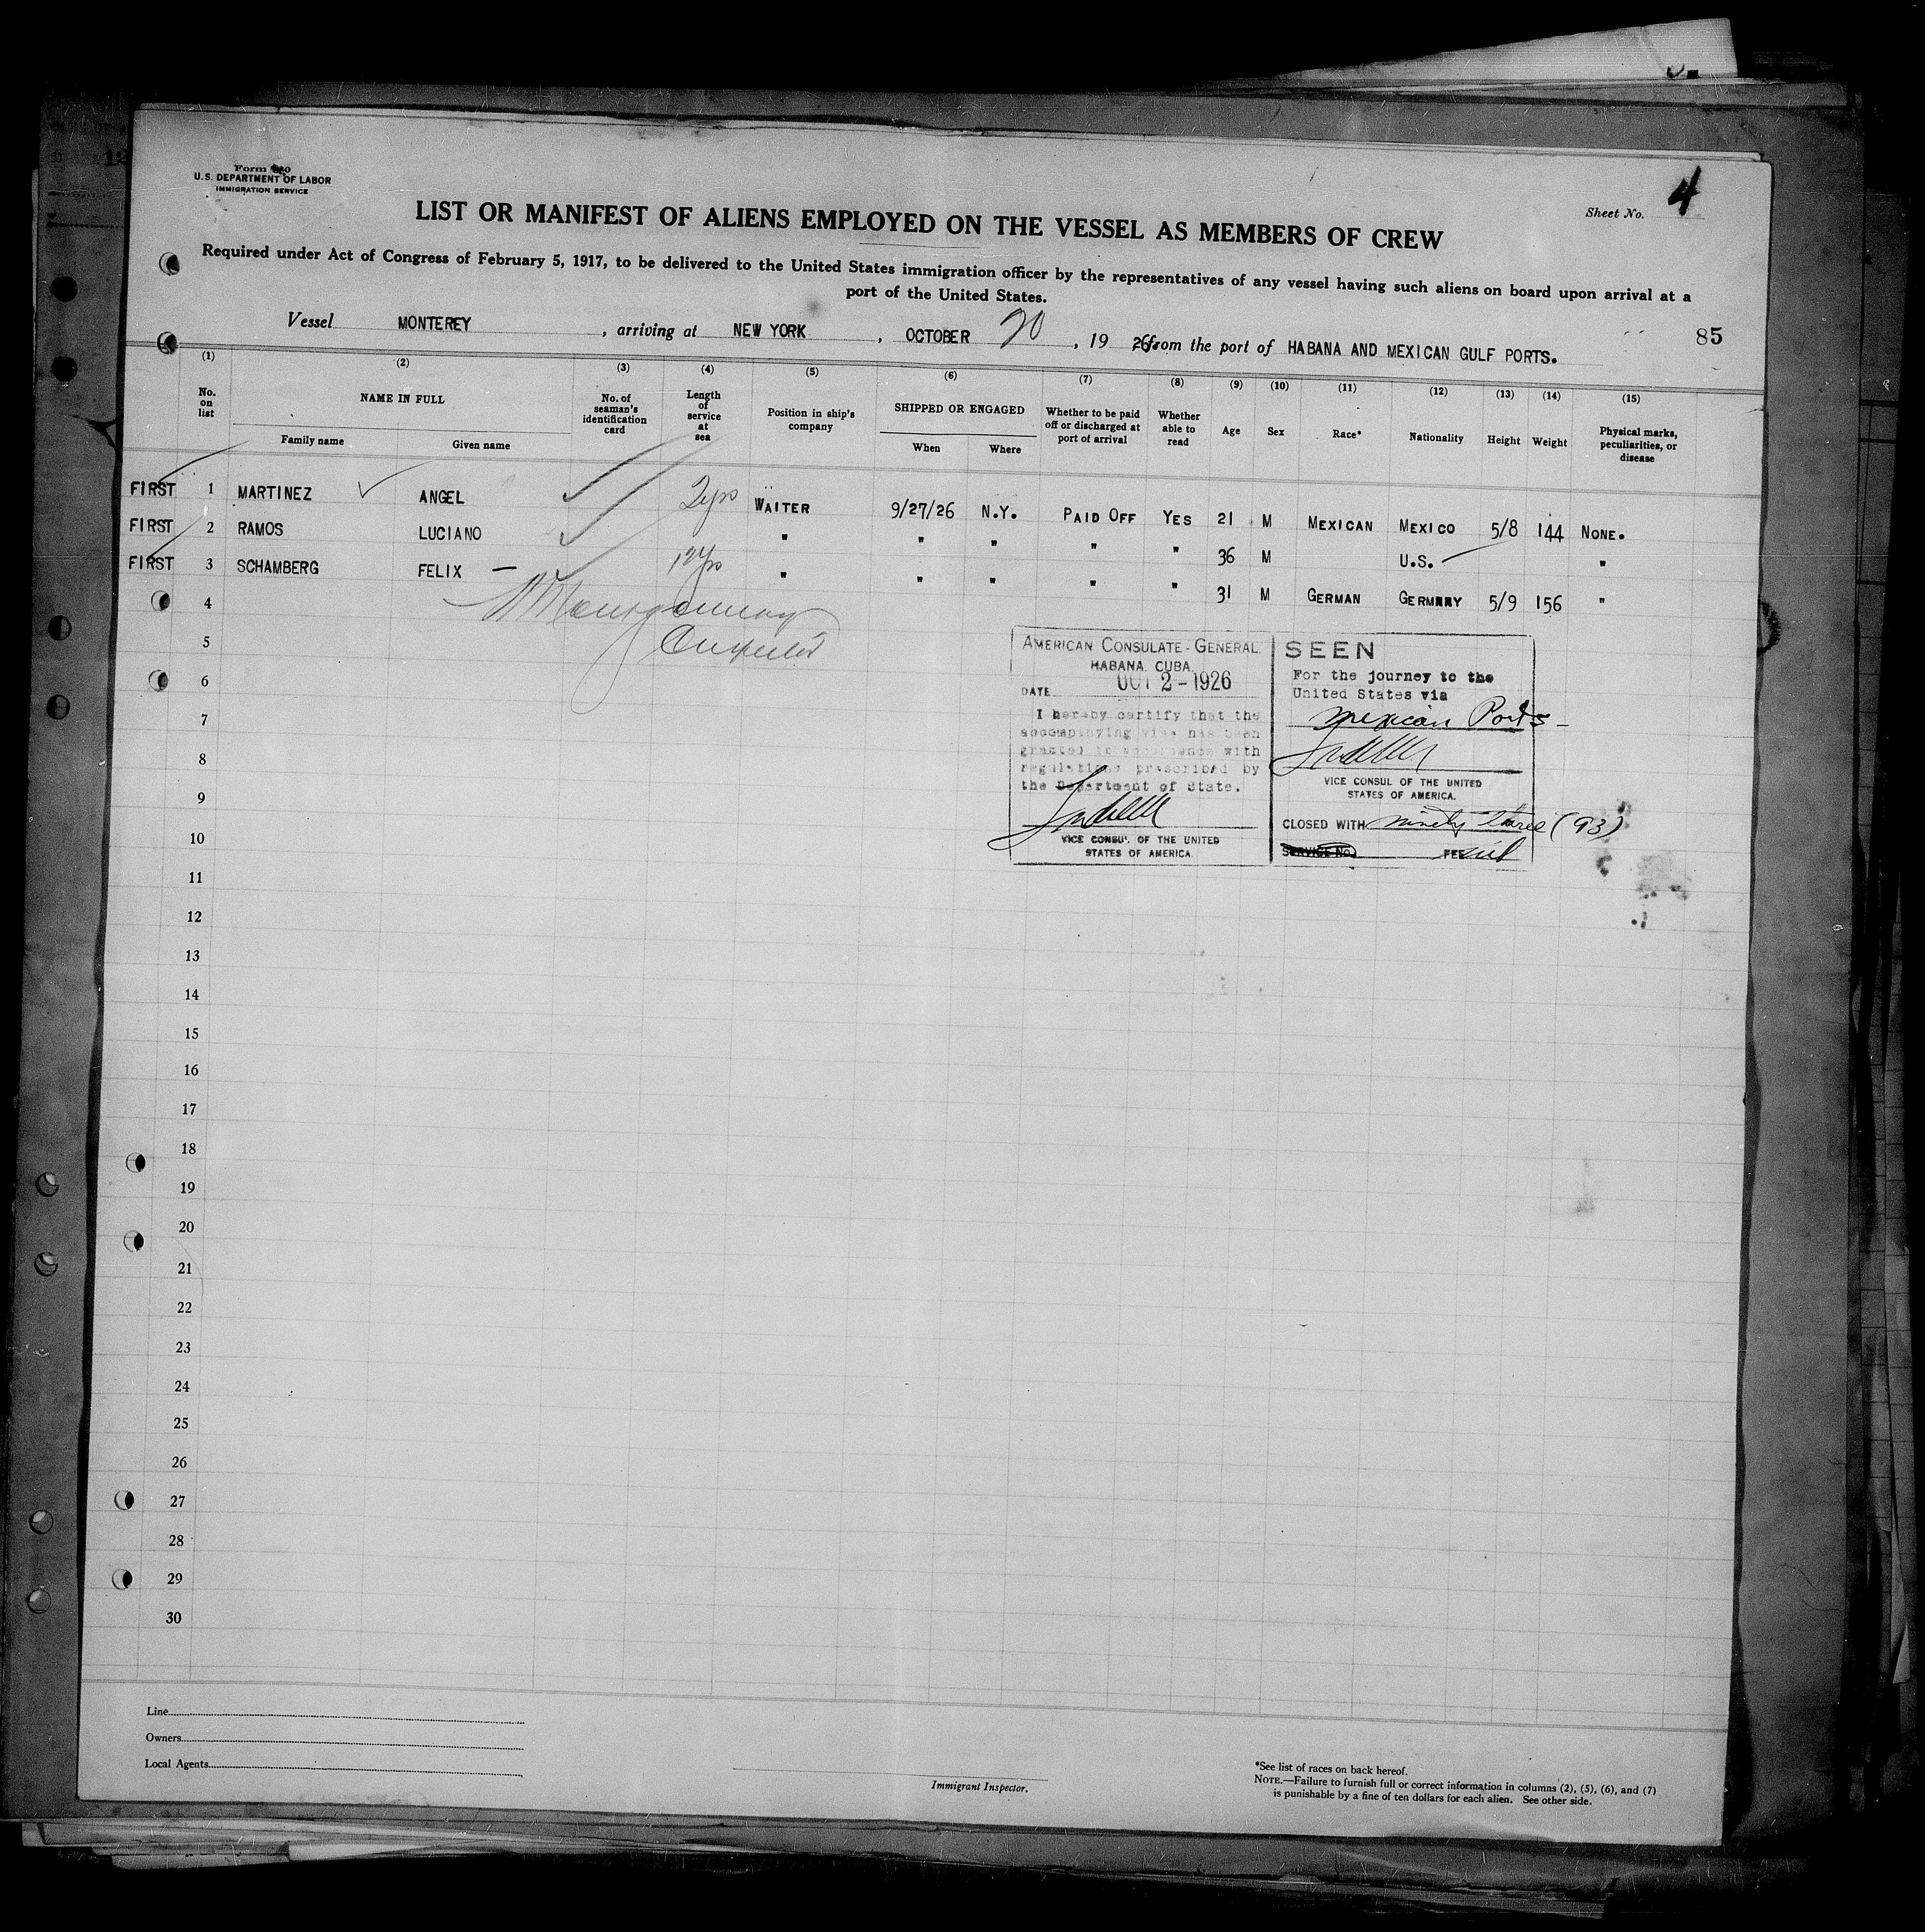 U.S. DEPARTMENT OF LABOR
IMMIGRATION SERVICE
Sheet No. 4
LIST OR MANIFEST OF ALIENS EMPLOYED ON THE VESSEL AS MEMBERS OF CREW
Required under Act of Congress of February 5, 1917, to be delivered to the United States immigration officer by the representatives of any vessel having such aliens on board upon arrival at a
port of the United States.
Vessel MONTEREY, arriving at NEW YORK, OCTOBER 20, 1926, from the port of HABANA AND MEXICAN GULF PORTS.
85
(1) (2) (3) (4) (5) (6) (7) (8) (9) (10) (11) (12) (13) (14) (15)
No. on list NAME IN FULL Family name Given name No. of seaman's identification card Length of service at sea Position in ship's company SHIPPED OR ENGAGED When Where Whether to be paid off or discharged at port of arrival Whether able to read Age Sex Race* Nationality Height Weight Physical marks, peculiarities, or disease
FIRST 1 MARTINEZ ANGEL 2yrs WAITER 9/27/26 N.Y. PAID OFF YES 21 M MEXICAN MEXICO 5/8 144 NONE.
FIRST 2 RAMOS LUCIANO " " " " " 36 M U.S. "
FIRST 3 SCHAMBERG FELIX 12yrs " " " " " 31 M GERMAN GERMANY 5/9 156 "
4
Montgomery
5
6
7
8
9
10
11
12
13
14
15
16
17
18
19
20
21
22
23
24
25
26
27
28
29
30
AMERICAN CONSULATE-GENERAL
HABANA. CUBA.
DATE OCT 2-1926
I hereby certify that the
accompanying visa has been
granted in accordance with
regulations prescribed by
the Department of State.
VICE CONSUL OF THE UNITED
STATES OF AMERICA
SEEN
For the journey to the
United States via
Mexican Ports-
VICE CONSUL OF THE UNITED
STATES OF AMERICA.
CLOSED WITH ninety three (93)
SERVICE NO. FEE nil
Line
Owners
Local Agents
Immigrant Inspector.
*See list of races on back hereof.
NOTE.—Failure to furnish full or correct information in columns (2), (5), (6), and (7)
is punishable by a fine of ten dollars for each alien. See other side.